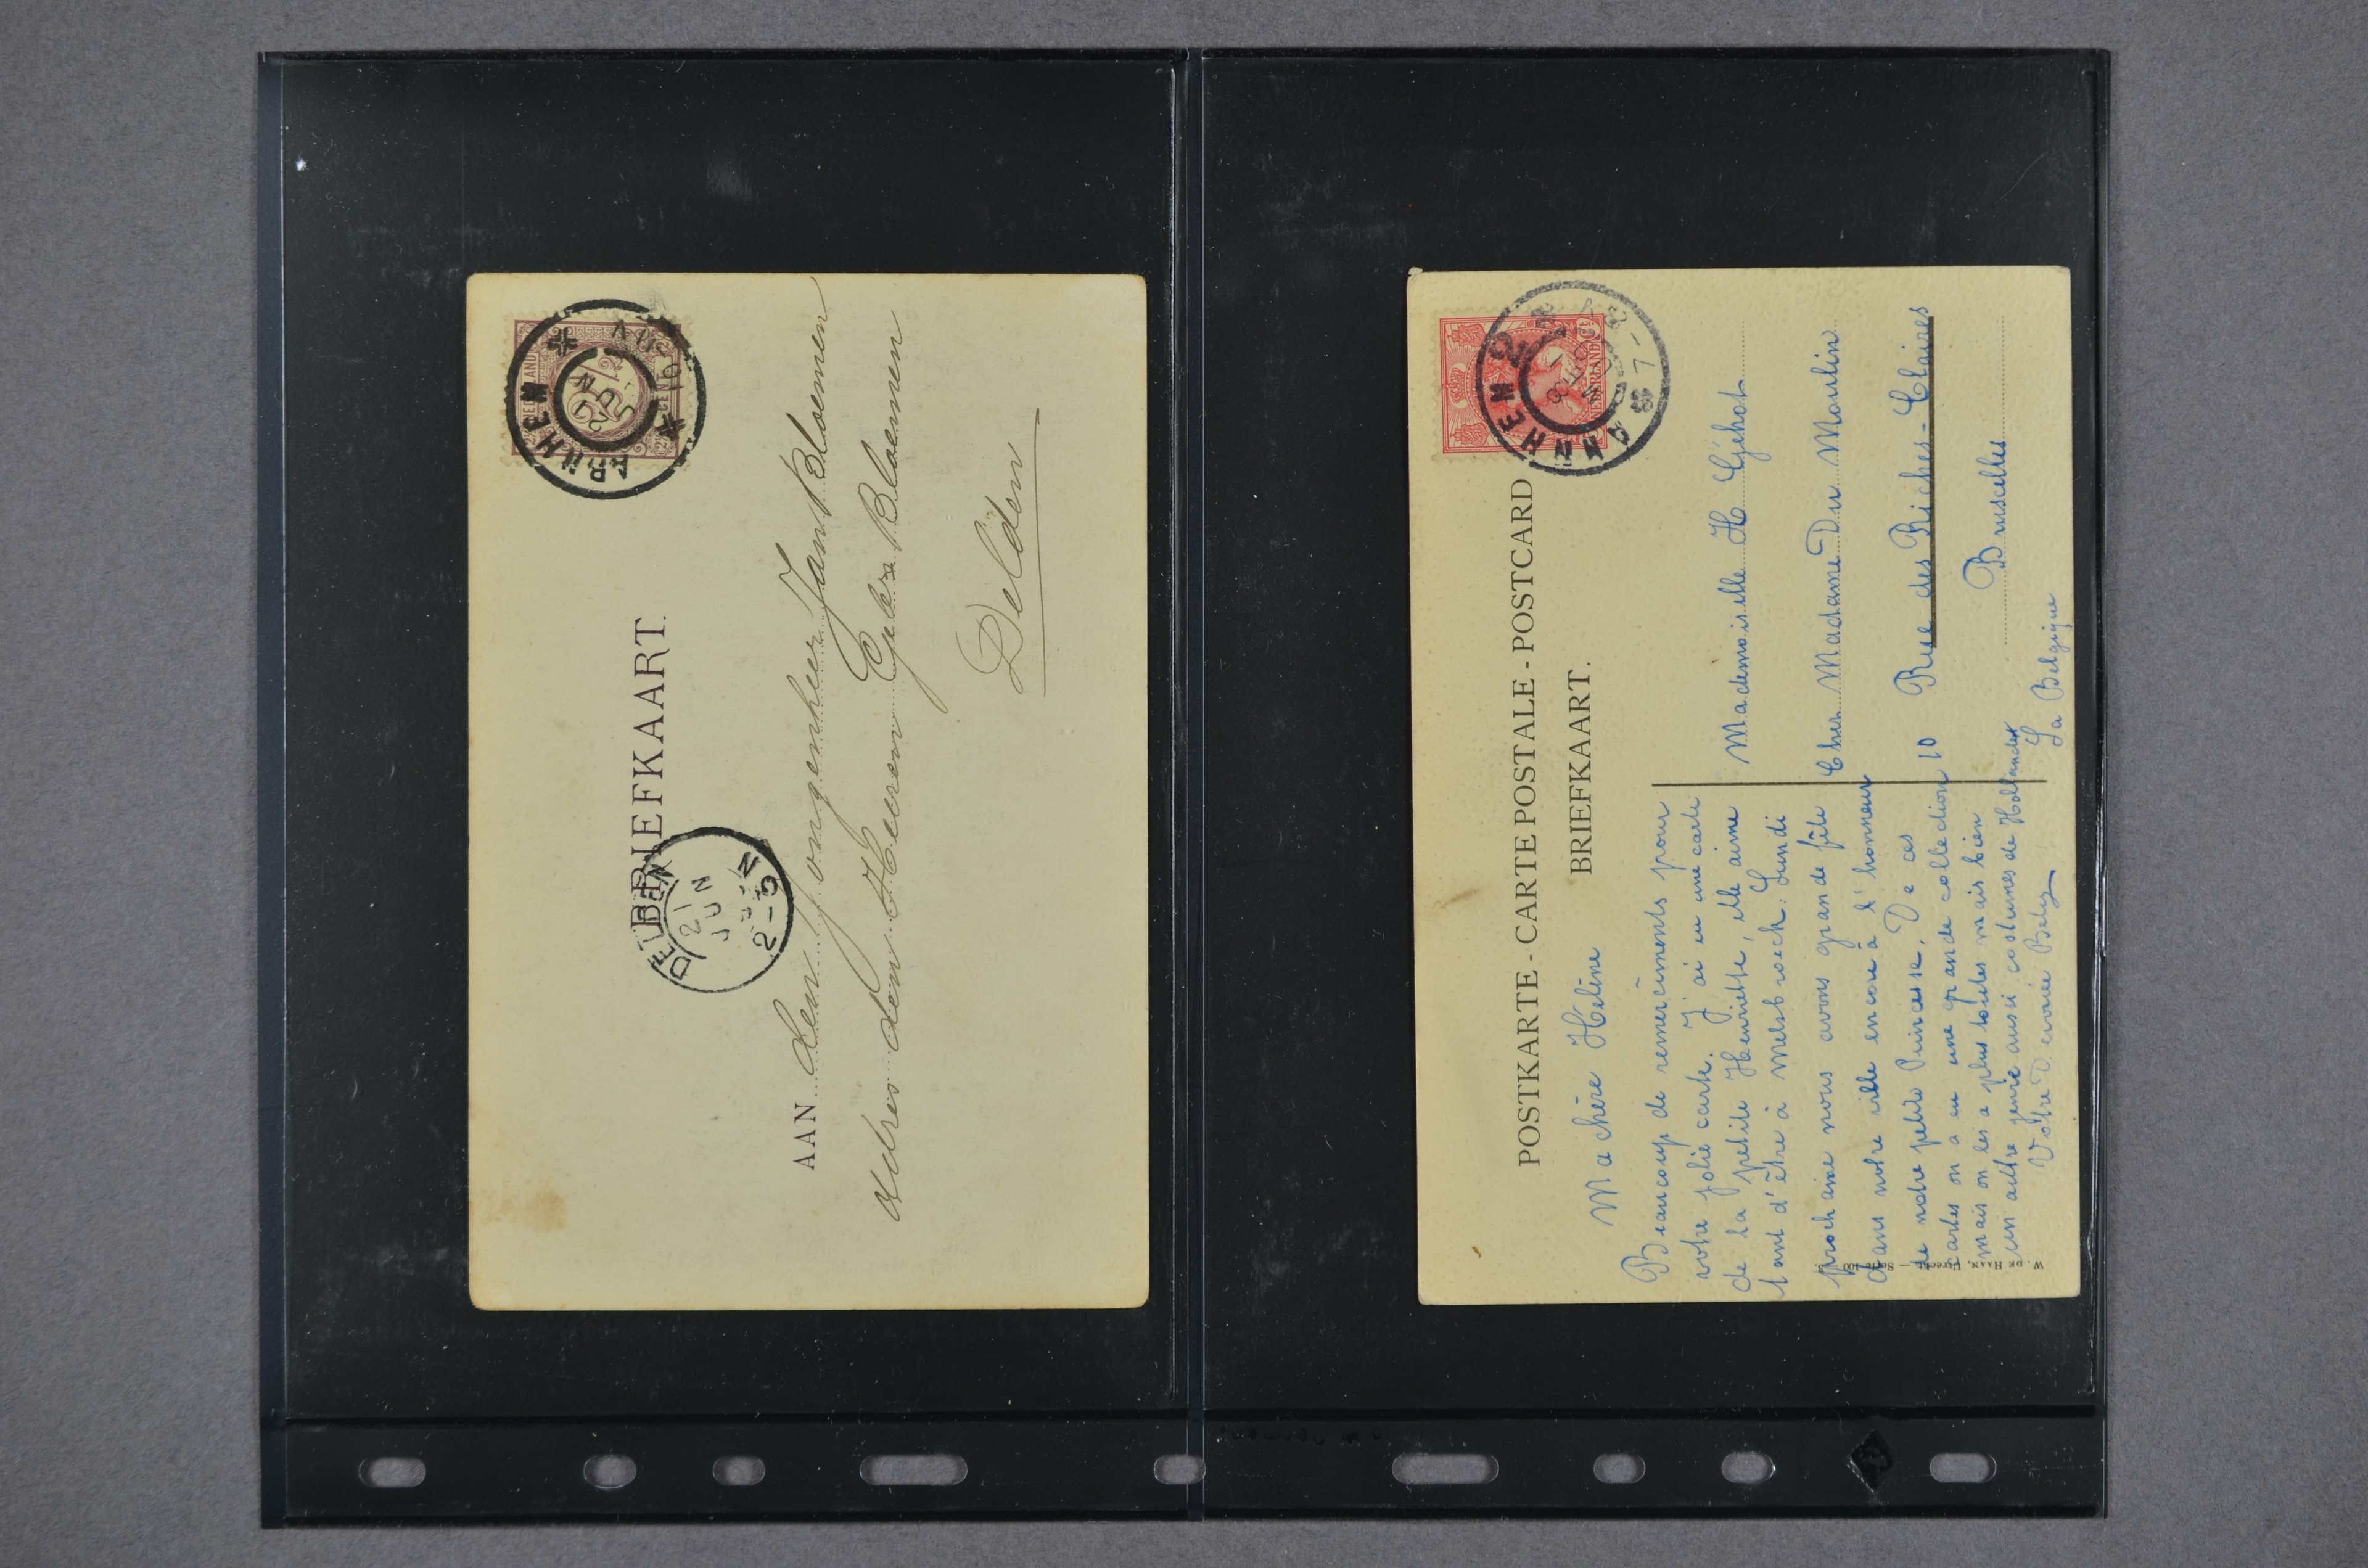 BRIEFKAART.
AAN den Jongenheer Jan Bloemen
Adres den Heeren Gebrs Bloemen
Delden
ARNHEM
21 JUN
10-11V
DELDEN
21
JUN
2-5N
NEDERLAND
2½
CENT
POSTKARTE - CARTE POSTALE - POSTCARD
BRIEFKAART.
ARNHEM
NEDERLAND
Mademoiselle H Géhot
Chez Madame Du Moulin
10 Rue des Riches-Claires
Bruxelles
La Belgique
Ma chère Hélène
Beaucoup de remercîments pour
votre jolie carte. J'ai eu une carte
de la petite Henriette, elle aime
tant d'être à Melsbroeck. Lundi
prochaine nous avons grande fête
dans notre ville encore à l'honneur
de notre petite Princesse. De ces
cartes on a eu une grande collection
mais on les a plus toutes mais bien
un autre genre aussi costumes de Hollande
Votre Betsy
W. DE HAAN, Utrecht. — Serie